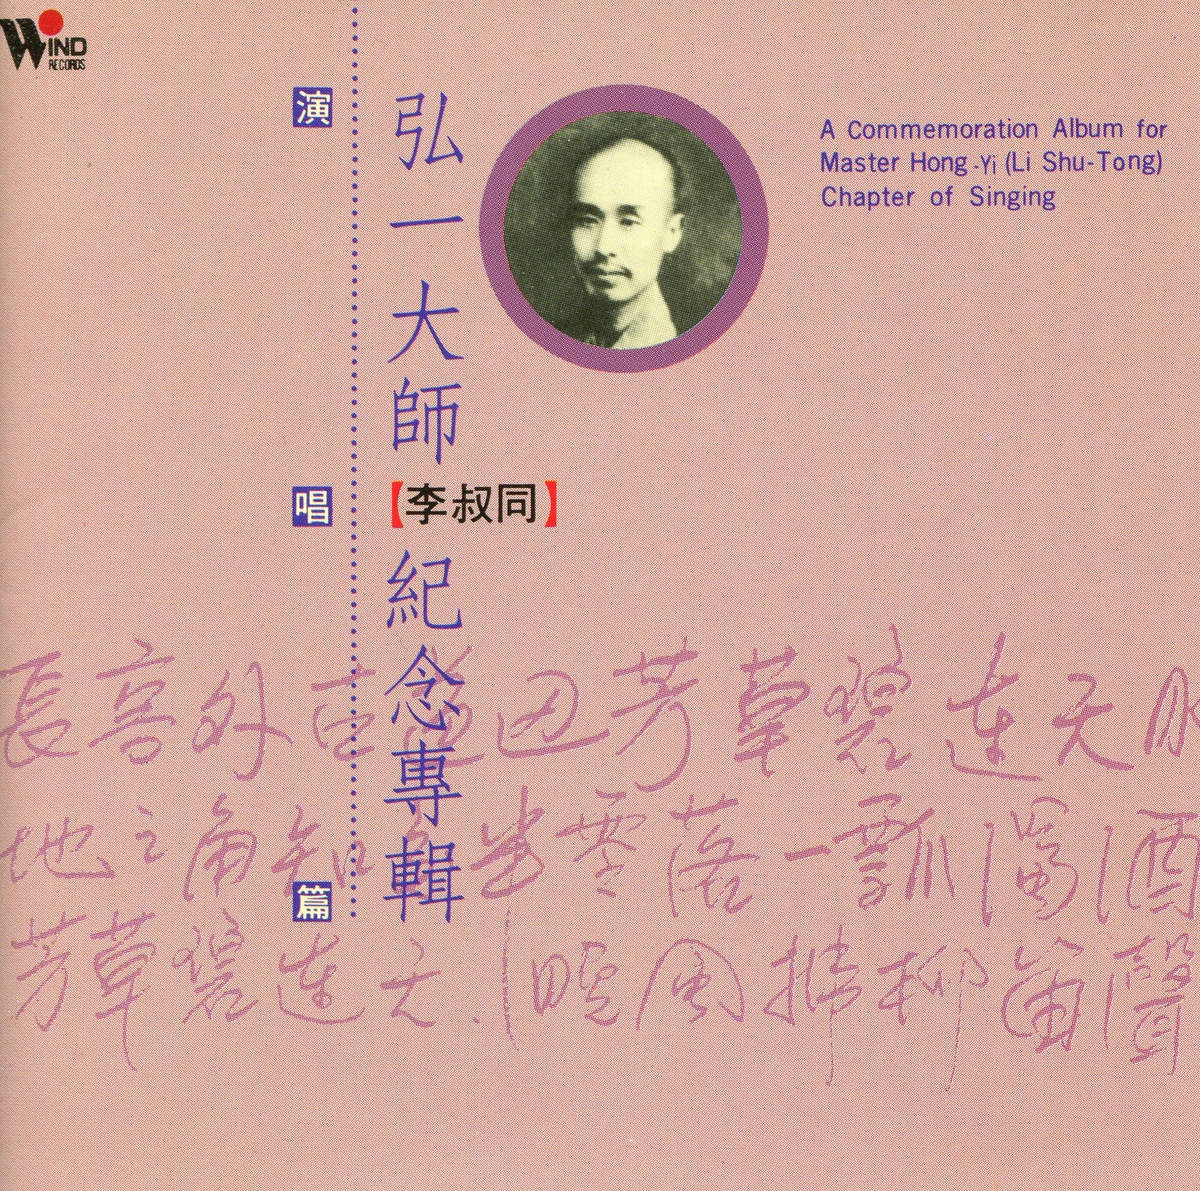 WIND
RECORDS
演唱篇
弘一大師
【李叔同】
紀念專輯
A Commemoration Album for
Master Hong-Yi (Li Shu-Tong)
Chapter of Singing
長亭外古道邊芳草碧連天
地之角知交半零落一瓢濁酒
芳草碧連天晚風拂柳笛聲